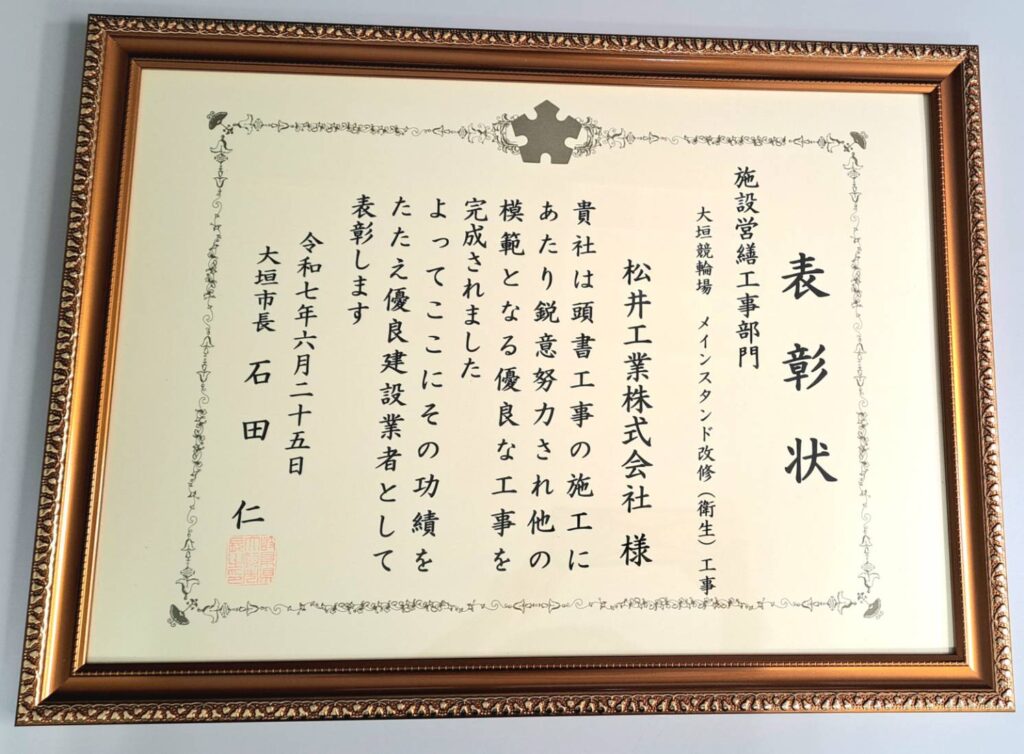 表彰状
施設営繕工事部門
大垣競輪場 メインスタンド改修(衛生)工事
松井工業株式会社 様
貴社は頭書工事の施工に
あたり鋭意努力され他の
模範となる優良な工事を
完成されました
よってここにその功績を
たたえ優良建設業者として
表彰します
令和七年六月二十五日
大垣市長 石田 仁